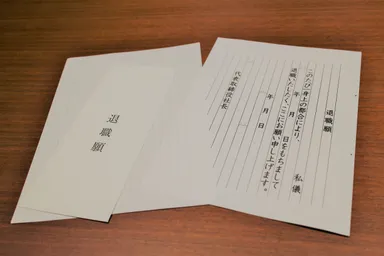 退職願
退職願
私儀
このたび、身上の都合により、
年 月 日をもちまして
退職いたしたく、ここにお願い申し上げます。
年 月 日
代表取締役社長